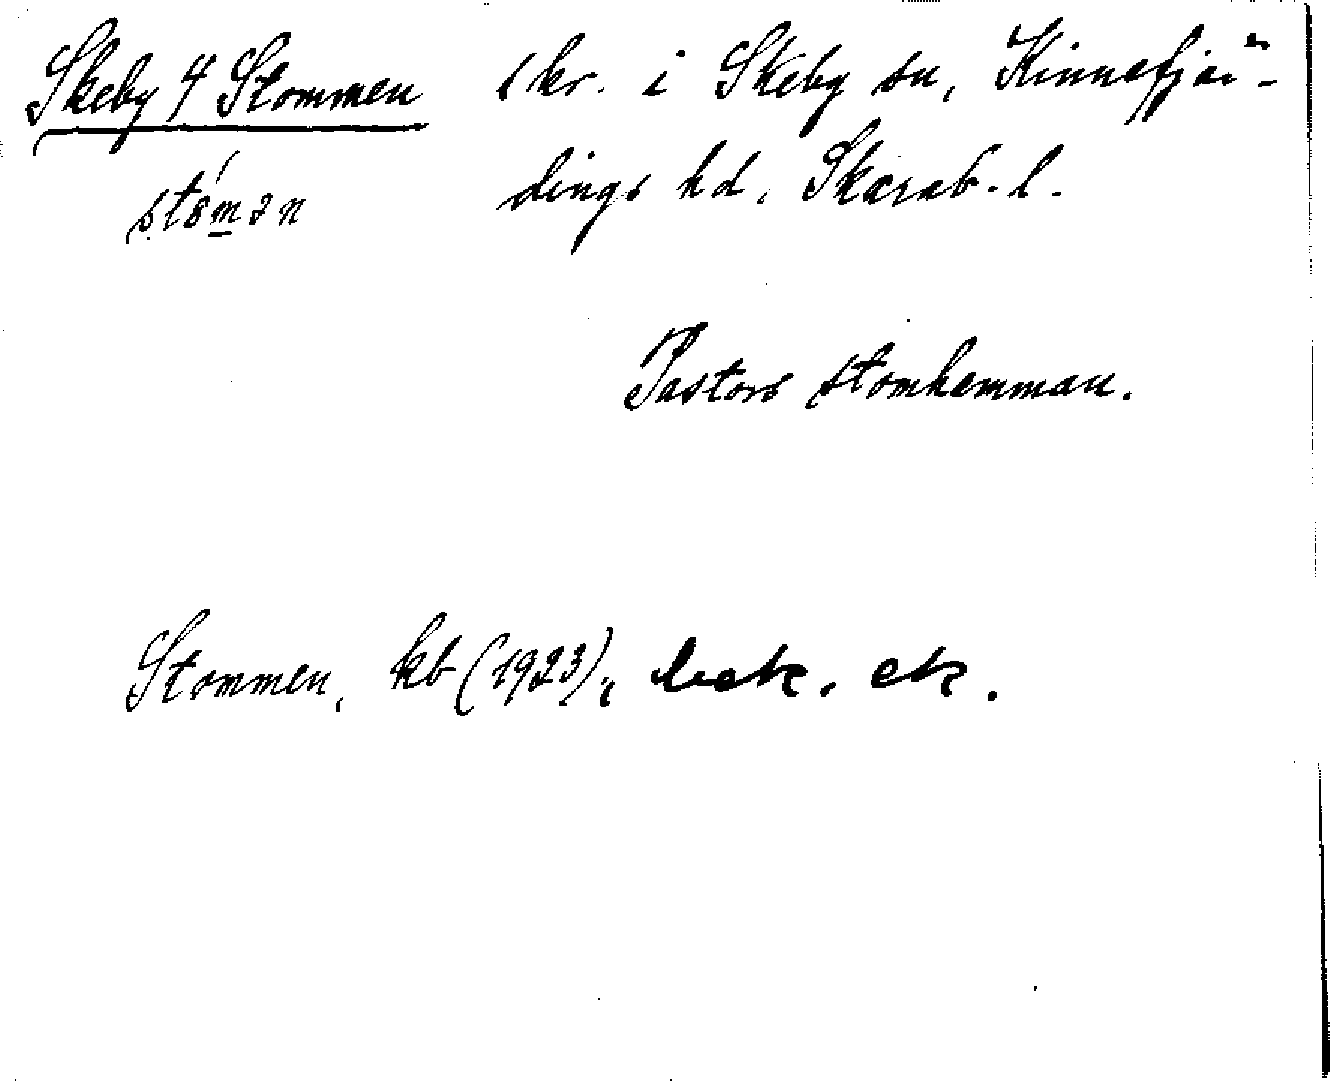 Skeby 4 Stommen 1 kr. i Skeby sn, Kinnefjär-
dings hd, Skarab. l.
Pastors stomhemman.
Stommen, kb (1923),